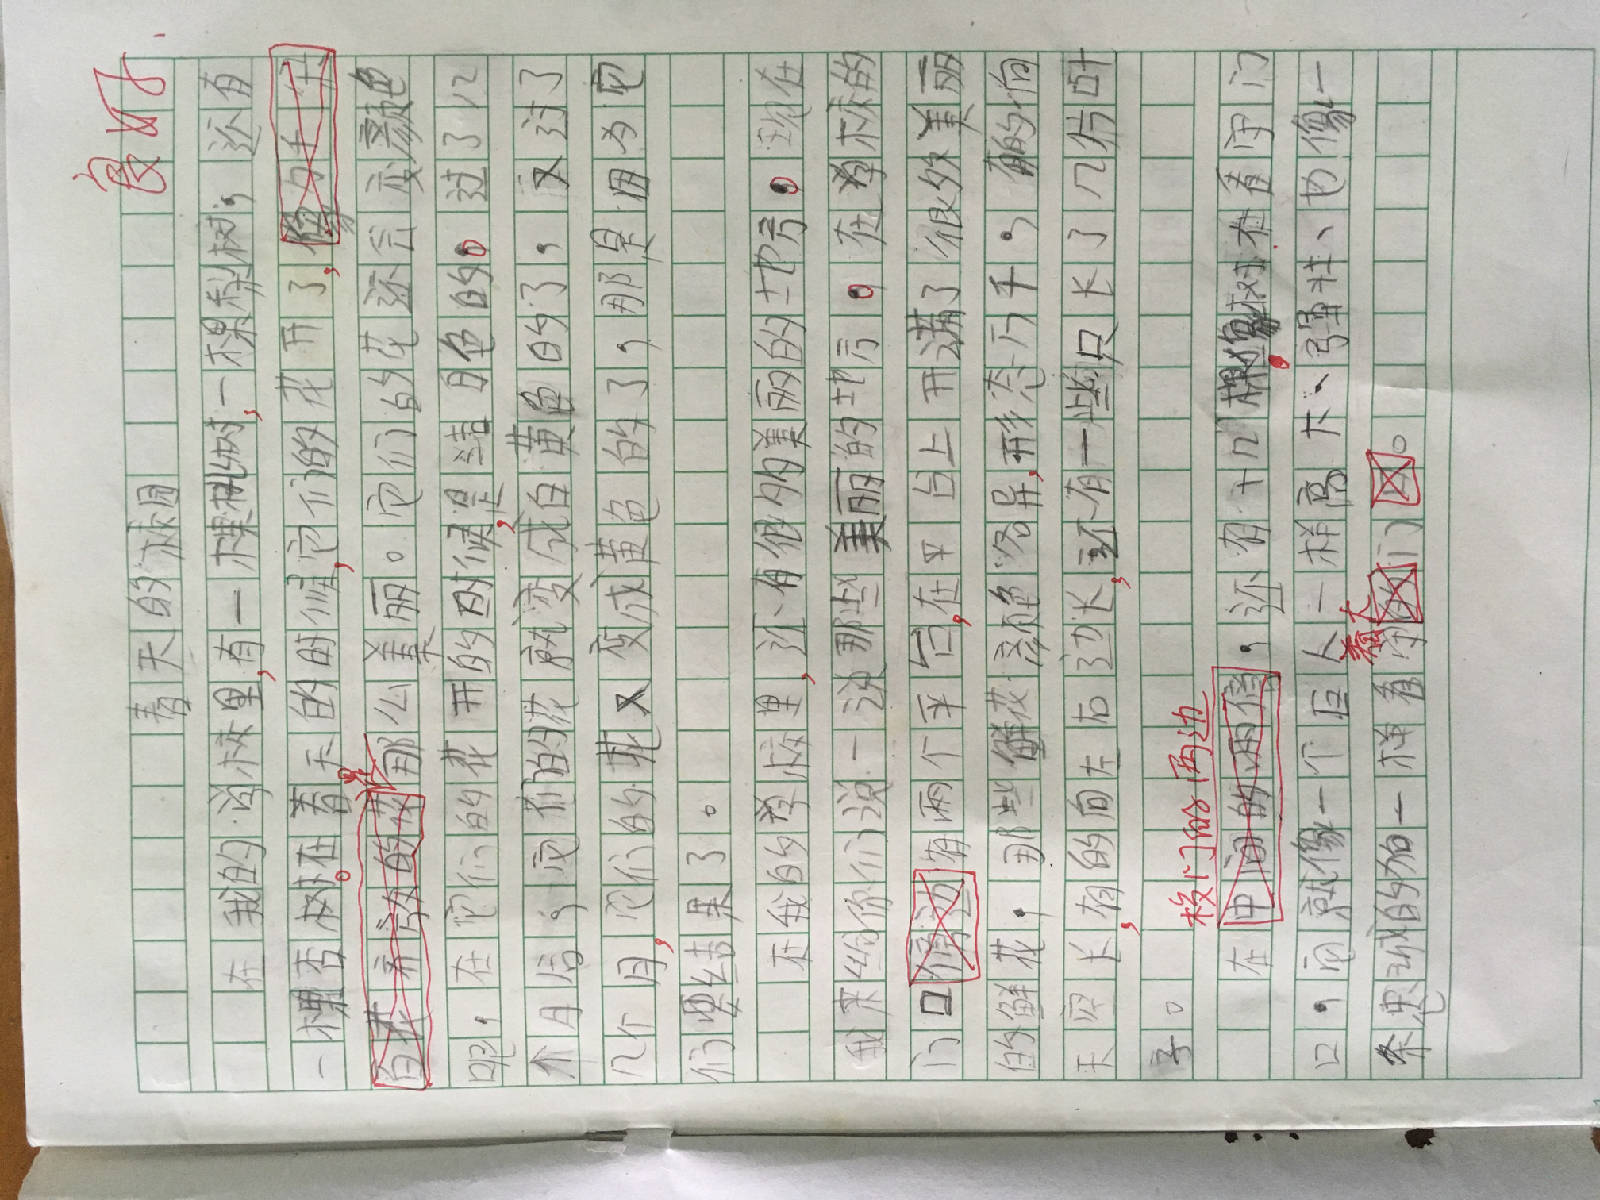 春天的校园
良好
在我的学校里，有一棵桃树，一棵梨树，还有
一棵杏树。在春天的时候，它们的花开了，
白花和淡的花那么美丽。它们的花还会变颜色
呢，在它们的花开的时候，是白色的。过了几
个月后，它们的花就变成白黄色的了，又过了
几个月，它们的花又变成黄色的了，那是因为它
们要结果了。
在我的学校里，还有很多的美丽的地方。现在
我来给你们说一说那些美丽的地方。在学校的
门口旁边有两个平台，在平台上开满了很多美丽
的鲜花，那些鲜花颜色各异，形态万千。有的向
天空长，有的向左右边长，还有一些只长了几片叶
子。
在中间的两旁，还有十几棵树在看守门
校门的两边
口，它就像一个巨人一样高大、强壮、也像一
条忠诚的狗一样看守门口。